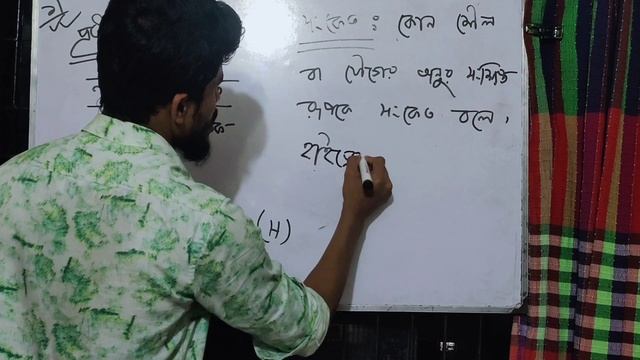 সংকেত : কোন মৌল
বা যৌগের অনুর সংক্ষিপ্ত
রূপকে সংকেত বলে।
হাইড্রো
(H)